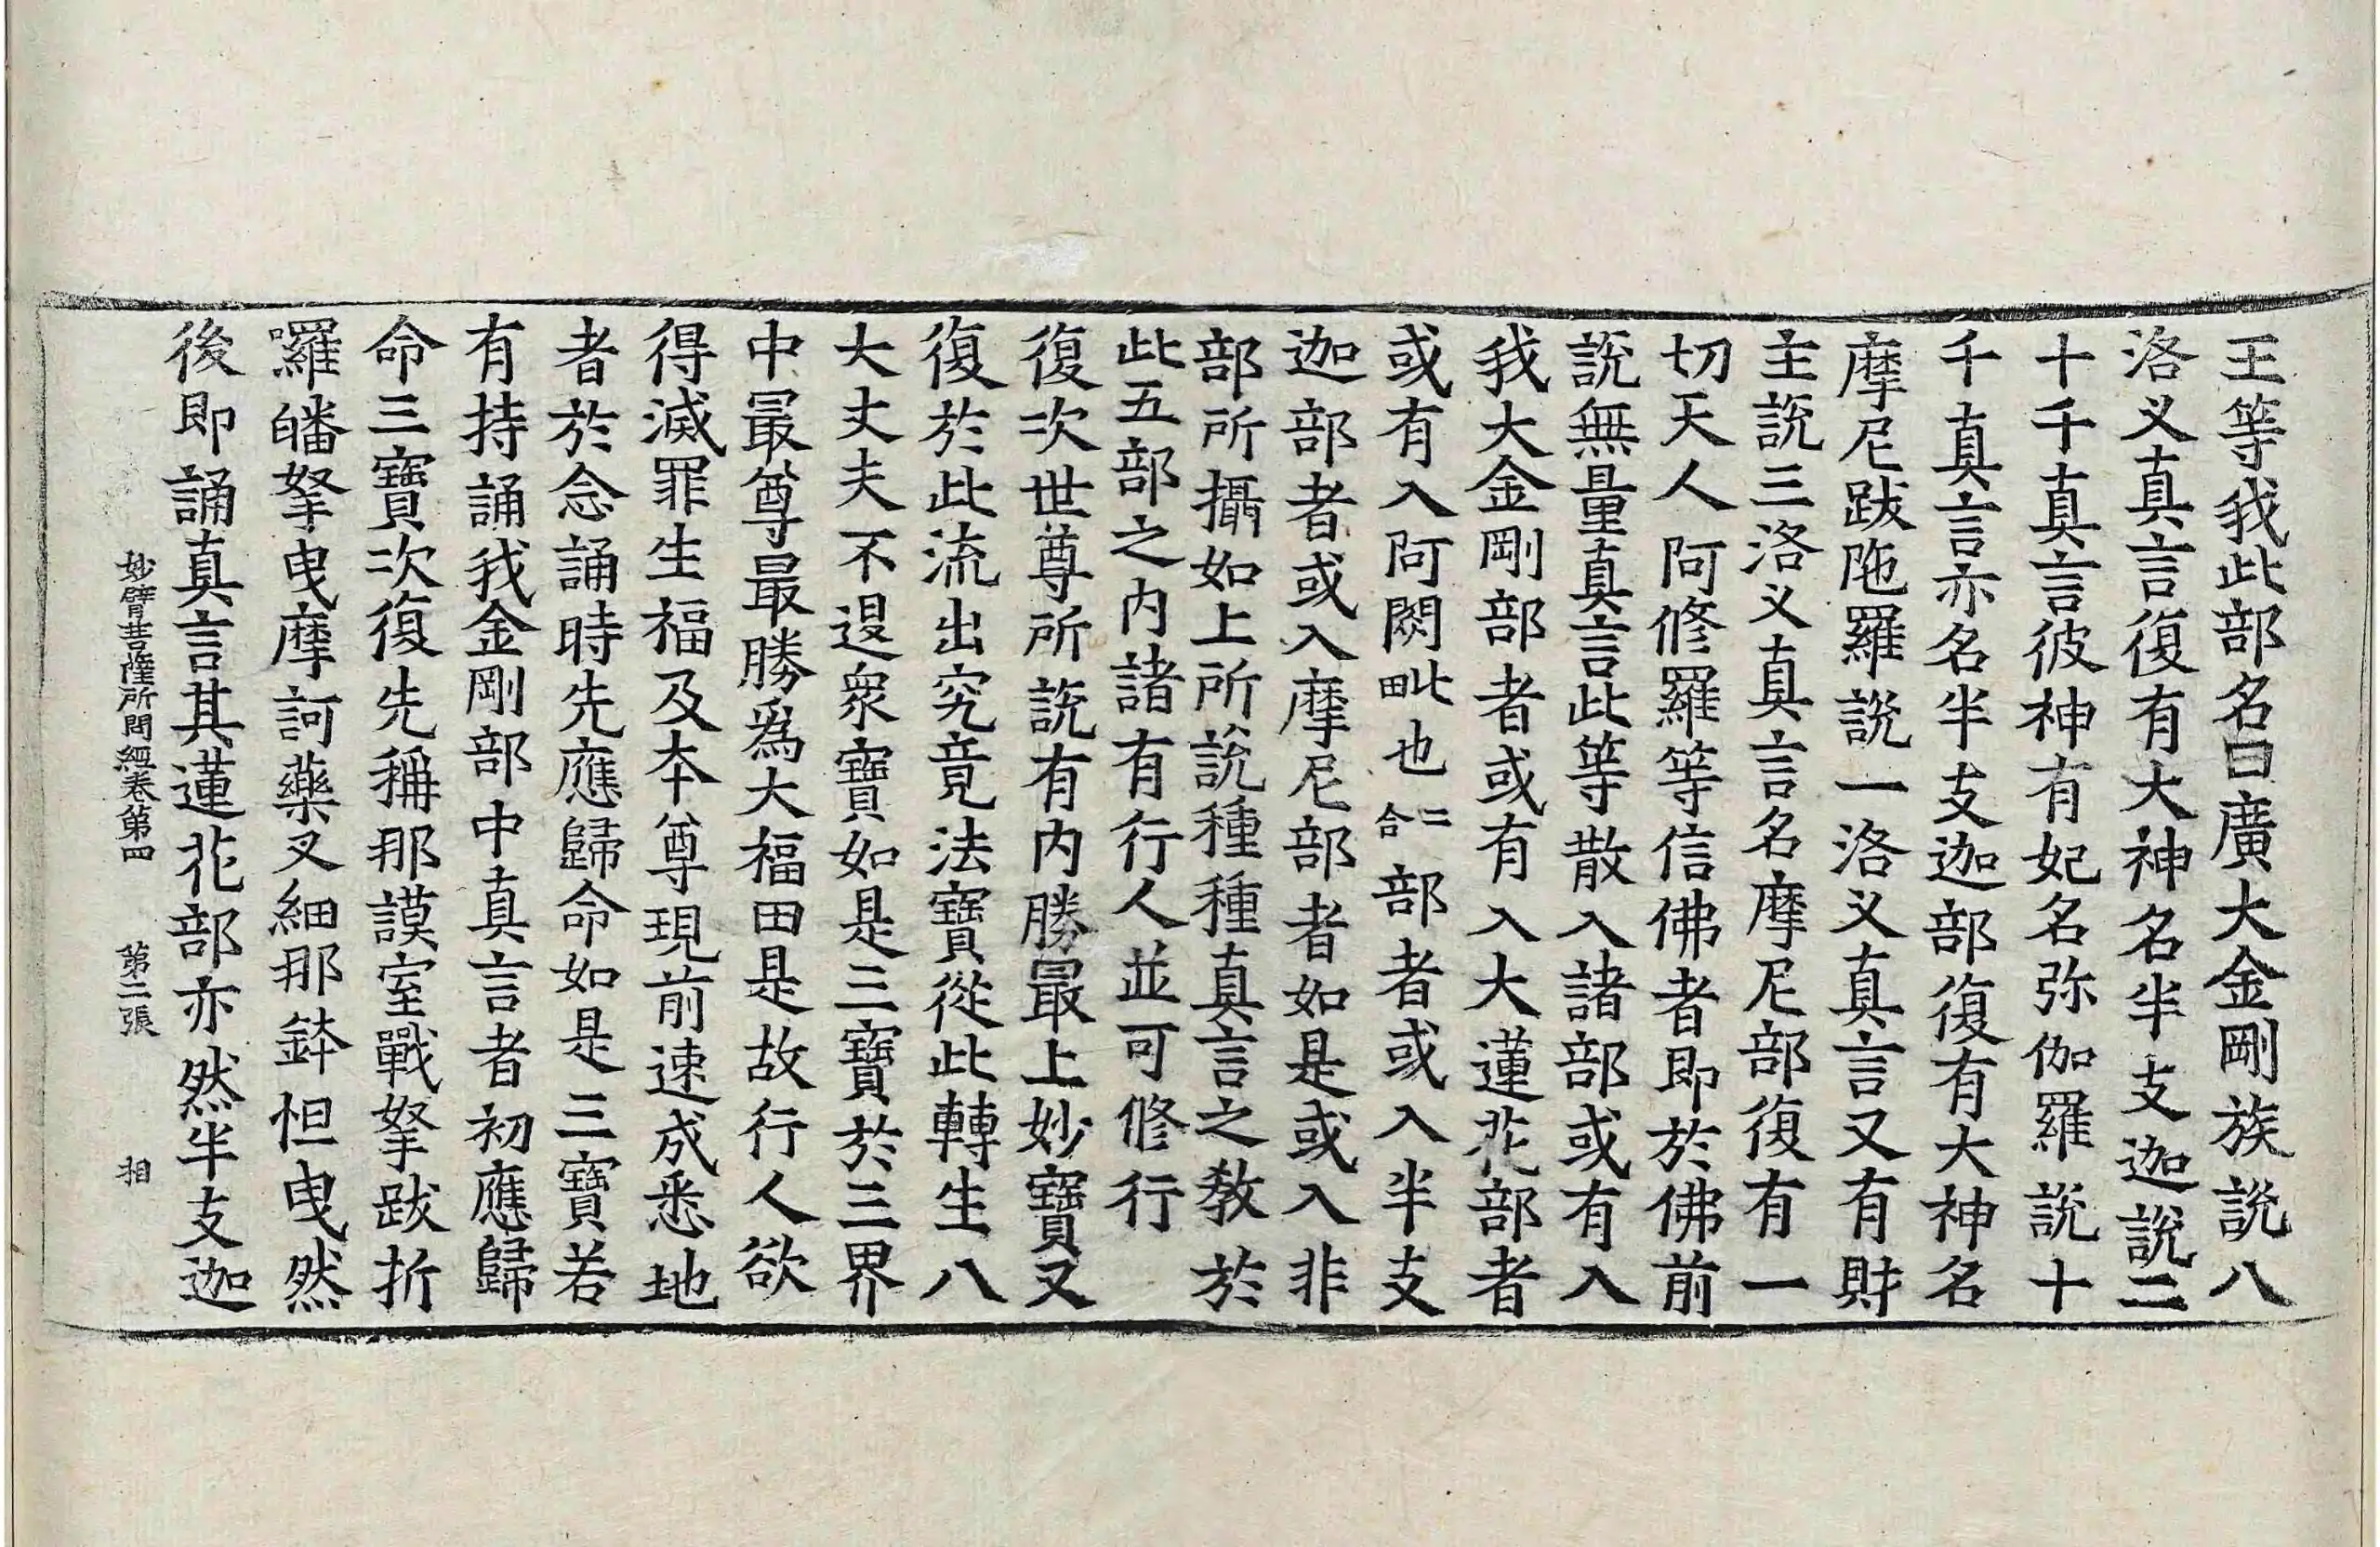 王等我此部名曰廣大金剛族說八
洛义真言復有大神名半支迦說二
十千真言彼神有妃名弥伽羅說十
千真言亦名半支迦部復有大神名
摩尼跋陁羅說一洛义真言又有財
主說三洛义真言名摩尼部復有一
切天人阿修羅等信佛者即於佛前
說無量真言此等散入諸部或有入
我大金剛部者或有入大蓮花部者
或有入阿閦毗也二合部者或入半支
迦部者或入摩尼部者如是或入非
部所攝如上所說種種真言之教於
此五部之内諸有行人並可修行
復次世尊所說有内勝最上妙寶又
復於此流出究竟法寶從此轉生八
大丈夫不退衆寶如是三寶於三界
中最尊最勝爲大福田是故行人欲
得滅罪生福及本尊現前速成悉地
者於念誦時先應歸命如是三寶若
有持誦我金剛部中真言者初應歸
命三寶次復先稱那謨室戰拏跋折
囉皤拏曳摩訶藥叉細那鉢怛曳然
後即誦真言其蓮花部亦然半支迦
妙臂菩薩所問經卷第四 第二張 相